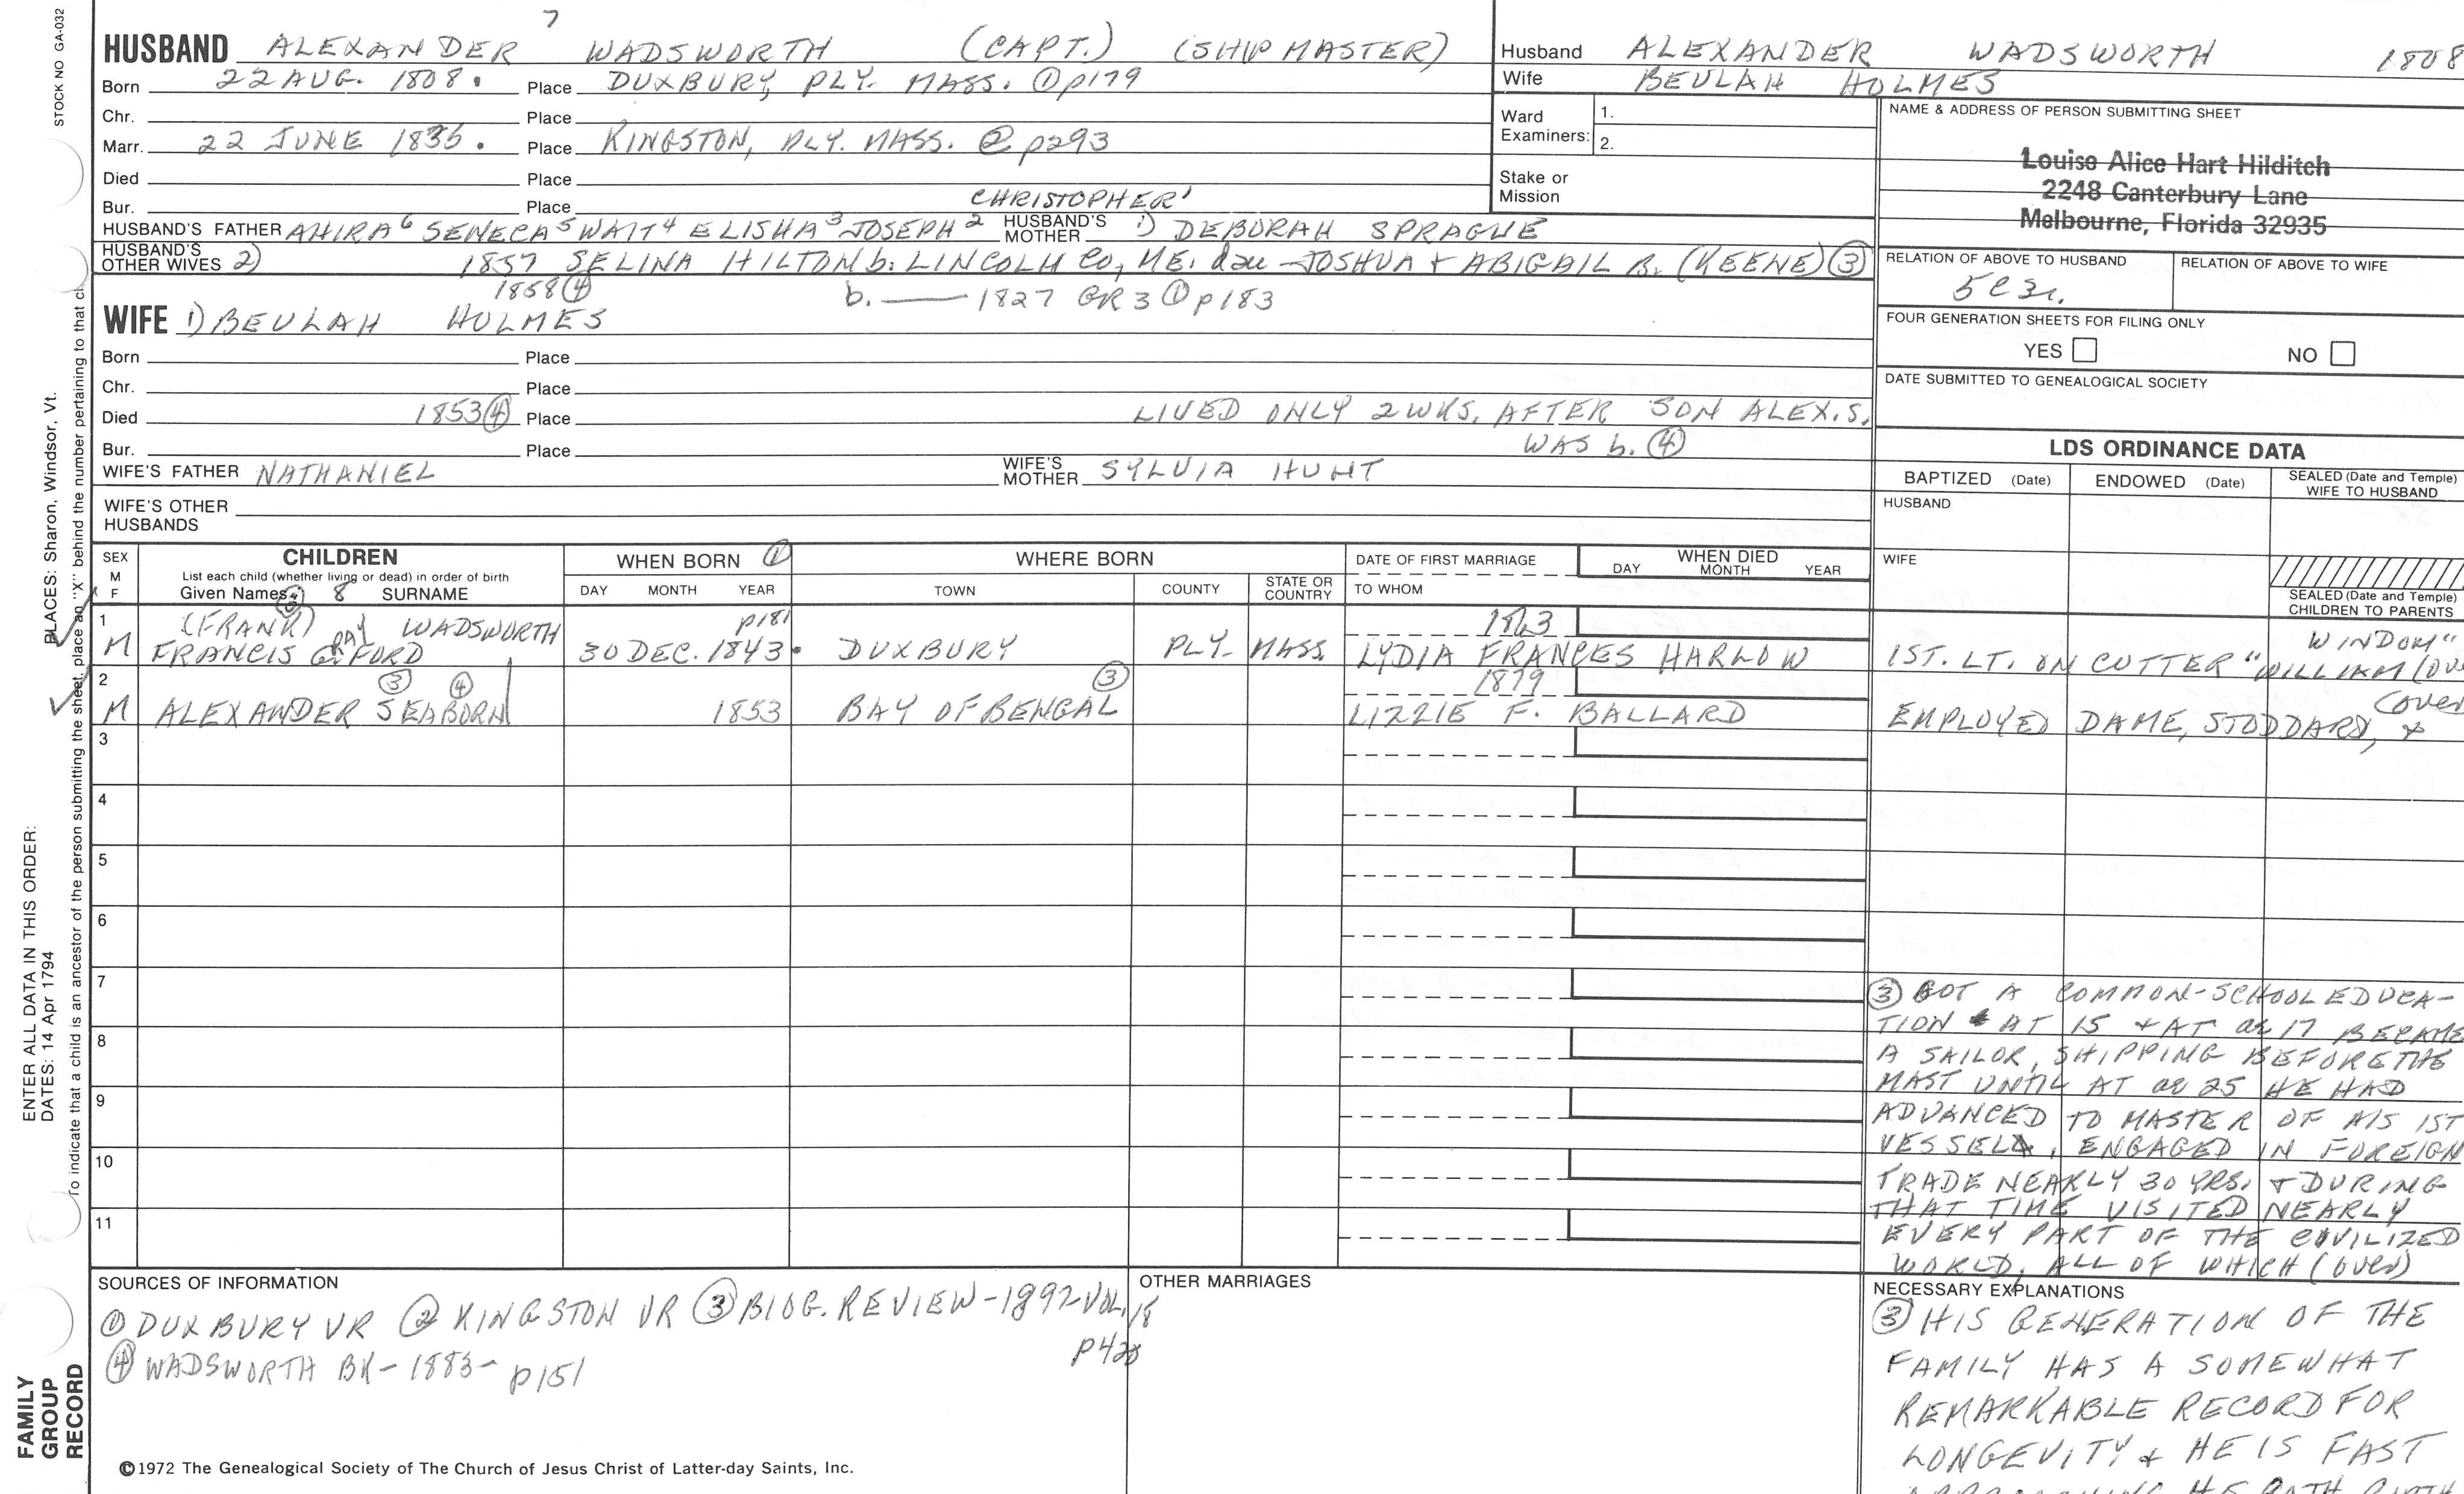 STOCK NO GA-032
7
HUSBAND ALEXANDER WADSWORTH (CAPT.) (SHIPMASTER)
Born 22 AUG. 1808. Place DUXBURY, PLY. MASS. ① p179
Chr. Place
Marr. 22 JUNE 1836. Place KINGSTON, PLY. MASS. ② p293
Died Place
Bur. Place CHRISTOPHER'
HUSBAND'S FATHER AHIRA⁶ SENECA⁵ WAIT⁴ ELISHA³ JOSEPH² HUSBAND'S MOTHER 1) DEBORAH SPRAGUE
HUSBAND'S OTHER WIVES 2) 1857 SELINA HILTON b. LINCOLN CO, ME. dau-JOSHUA + ABIGAIL B. (KEENE) ③
1858 ④ b. — 1827 GR 3 ① p183
WIFE 1) BEULAH HOLMES
Born Place
Chr. Place
Died 1853 ④ Place LIVED ONLY 2 WKS. AFTER SON ALEX. S.
Bur. Place WAS b. ④
WIFE'S FATHER NATHANIEL WIFE'S MOTHER SYLVIA HUNT
WIFE'S OTHER HUSBANDS
Husband ALEXANDER WADSWORTH 1808
Wife BEULAH HOLMES
Ward Examiners: 1.
2.
Stake or Mission
NAME & ADDRESS OF PERSON SUBMITTING SHEET
Louise Alice Hart Hilditch
2248 Canterbury Lane
Melbourne, Florida 32935
RELATION OF ABOVE TO HUSBAND RELATION OF ABOVE TO WIFE
FOUR GENERATION SHEETS FOR FILING ONLY
YES NO
DATE SUBMITTED TO GENEALOGICAL SOCIETY
LDS ORDINANCE DATA
BAPTIZED (Date) ENDOWED (Date) SEALED (Date and Temple) WIFE TO HUSBAND
HUSBAND
WIFE
SEALED (Date and Temple) CHILDREN TO PARENTS
SEX M F
CHILDREN
List each child (whether living or dead) in order of birth
Given Names 8 SURNAME
WHEN BORN ①
DAY MONTH YEAR
WHERE BORN
TOWN COUNTY STATE OR COUNTRY
DATE OF FIRST MARRIAGE
TO WHOM
WHEN DIED
DAY MONTH YEAR
1 (FRANK) WADSWORTH p181 1863 WINDOM"
M FRANCIS FORD 30 DEC. 1843. DUXBURY PLY. MASS. LYDIA FRANCES HARLOW 1ST. LT. ON CUTTER "WILLIAM
2 ③ ④ ③ 1879 (over
M ALEXANDER SEABORN 1853 BAY OF BENGAL LIZZIE F. BALLARD EMPLOYED DAME, STODDARD, &
3
4
5
6
7
8
9
10
11
③ GOT A COMMON-SCHOOL EDUCA-
TION AT 15 + AT ae 17 BECAME
A SAILOR, SHIPPING BEFORE THE
MAST UNTIL AT ae 25 HE HAD
ADVANCED TO MASTER OF HIS 1ST
VESSEL, ENGAGED IN FOREIGN
TRADE NEARLY 30 YRS. + DURING
THAT TIME VISITED NEARLY
EVERY PART OF THE CIVILIZED
WORLD, ALL OF WHICH (over)
SOURCES OF INFORMATION
① DUXBURY VR ② KINGSTON VR ③ BIOG. REVIEW-1892 VOL. 18
④ WADSWORTH BK-1883- p151
OTHER MARRIAGES
NECESSARY EXPLANATIONS
③ HIS GENERATION OF THE
FAMILY HAS A SOMEWHAT
REMARKABLE RECORD FOR
LONGEVITY + HE IS FAST
©1972 The Genealogical Society of The Church of Jesus Christ of Latter-day Saints, Inc.
FAMILY GROUP RECORD
ENTER ALL DATA IN THIS ORDER:
DATES: 14 Apr 1794
PLACES: Sharon, Windsor, Vt.
To indicate that a child is an ancestor of the person submitting the sheet, place an "X" behind the number pertaining to that